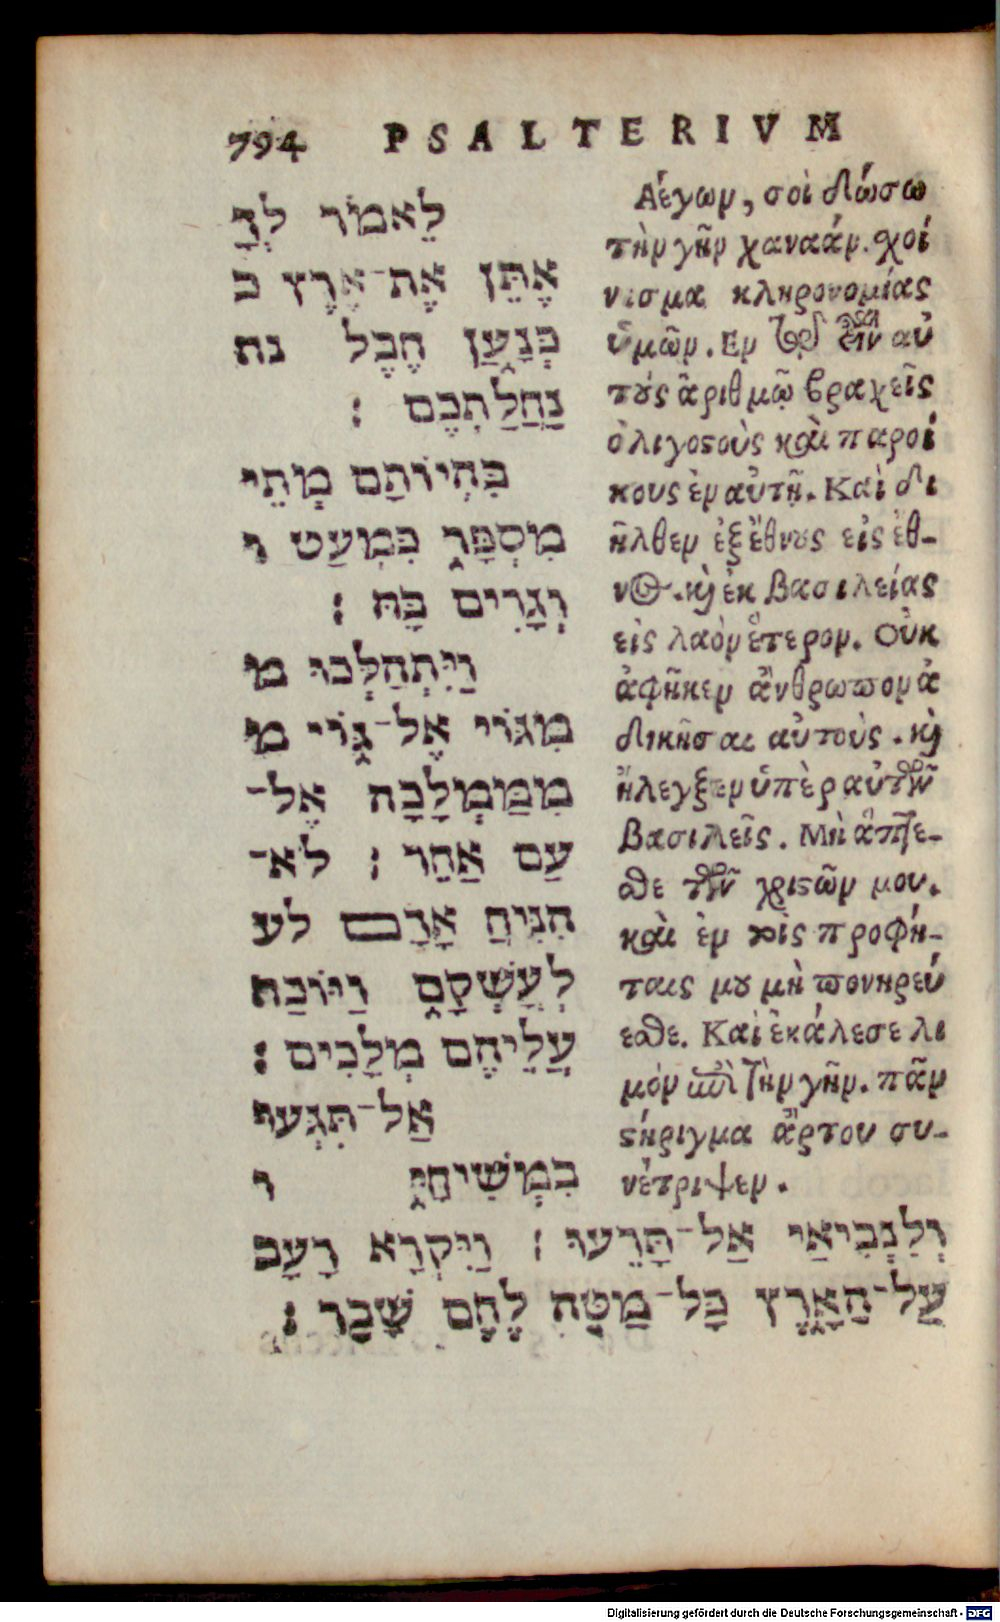 794 PSALTERIVM
לֵאמֹר לְךָ
אֶתֵּן אֶת־אֶרֶץ כ
כְּנָעַן חֶבֶל נח
נַחֲלַתְכֶם :
בִּהְיוֹתָם מְתֵי
מִסְפָּר כִּמְעַט ו
וְגָרִים בָּהּ :
וַיִּתְהַלְּכוּ מ
מִגּוֹי אֶל־גּוֹי מ
מִמַּמְלָכָה אֶל־
עַם אַחֵר : לא־
הִנִּיחַ אָדָם לע
לְעָשְׁקָם וַיּוֹכַח
עֲלֵיהֶם מְלָכִים :
אַל־תִּגְּעוּ
בִמְשִׁיחָי ו
וְלִנְבִיאַי אַל־תָּרֵעוּ : וַיִּקְרָא רָעָב
עַל־הָאָרֶץ כָּל־מַטֵּה לֶחֶם שָׁבָר :
Λέγων, σοὶ δώσω
τὴν γῆν χαναάν. χοί
νισμα κληρονομίας
ὑμῶν. Εν τῷ εἶναι αὐ
τοὺς ἀριθμῷ βραχεῖς
ὀλιγοστοὺς καὶ παροί
κους ἐν αὐτῇ. Καὶ δι
ῆλθεν ἐξ ἔθνους εἰς ἔθ-
νος. καὶ ἐκ βασιλείας
εἰς λαὸν ἕτερον. Οὐκ
ἀφῆκεν ἄνθρωπον ἀ
δικῆσαι αὐτοὺς. καὶ
ἤλεγξεν ὑπὲρ αὐτῶν
βασιλεῖς. Μὴ ἅπτε-
σθε τῶν χριστῶν μου.
καὶ ἐν τοῖς προφή-
ταις μου μὴ πονηρεύ
εσθε. Καὶ ἐκάλεσε λι
μὸν ἐπὶ τὴν γῆν. πᾶν
στήριγμα ἄρτου συ-
νέτριψεν.
Digitalisierung gefördert durch die Deutsche Forschungsgemeinschaft - DFG